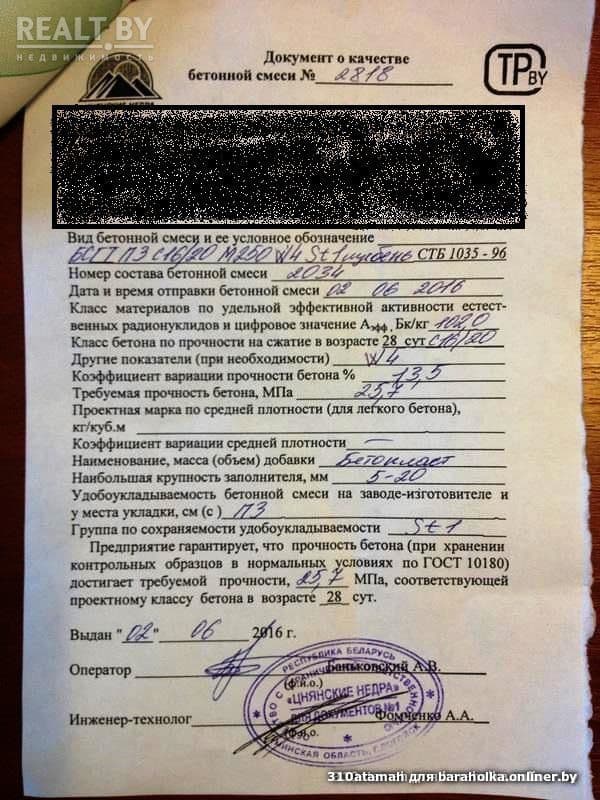 REALT.BY
недвижимость
ЦНЯНСКИЕ НЕДРА
Документ о качестве
бетонной смеси № 2818
ТР BY
Вид бетонной смеси и ее условное обозначение
БСГТ П3 С16/20 М250 W4 St1 щебень СТБ 1035 - 96
Номер состава бетонной смеси 2034
Дата и время отправки бетонной смеси 02 06 2016
Класс материалов по удельной эффективной активности естест-
венных радионуклидов и цифровое значение Аэфф, Бк/кг
Класс бетона по прочности на сжатие в возрасте 28 сут С16/20
Другие показатели (при необходимости) W4
Коэффициент вариации прочности бетона % 13,5
Требуемая прочность бетона, МПа 25,7
Проектная марка по средней плотности (для легкого бетона),
кг/куб.м
Коэффициент вариации средней плотности —
Наименование, масса (объем) добавки Бетопласт
Наибольшая крупность заполнителя, мм 5-20
Удобоукладываемость бетонной смеси на заводе-изготовителе и
у места укладки, см (с ) П3
Группа по сохраняемости удобоукладываемости St1
Предприятие гарантирует, что прочность бетона (при хранении
контрольных образцов в нормальных условиях по ГОСТ 10180)
достигает требуемой прочности, 25,7 МПа, соответствующей
проектному классу бетона в возрасте 28 сут.
Выдан "02" 06 2016 г.
РЕСПУБЛИКА БЕЛАРУСЬ
Оператор Баньковский А.В.
(ф.и.о.)
«ЦНЯНСКИЕ НЕДРА»
ДЛЯ ДОКУМЕНТОВ №1
Инженер-технолог Фомченко А.А.
(ф.и.о.)
МИНСКАЯ ОБЛАСТЬ, Г.
310atamah для baraholka.onliner.by